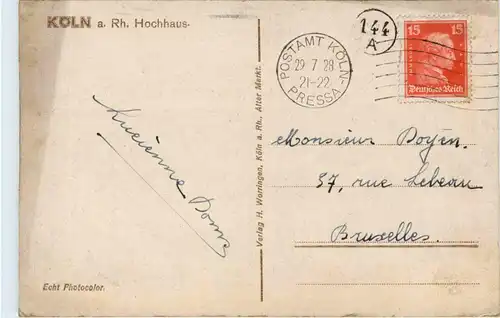 KÖLN a. Rh. Hochhaus.
144
A
POSTAMT KÖLN-
PRESSA
29 7 28
21-22
15 15
Deutsches Reich
Lucienne
Monsieur Doyen.
37, rue Lebeau
Bruxelles.
Verlag H. Worringen, Köln a. Rh., Alter Markt.
Echt Photocolor.